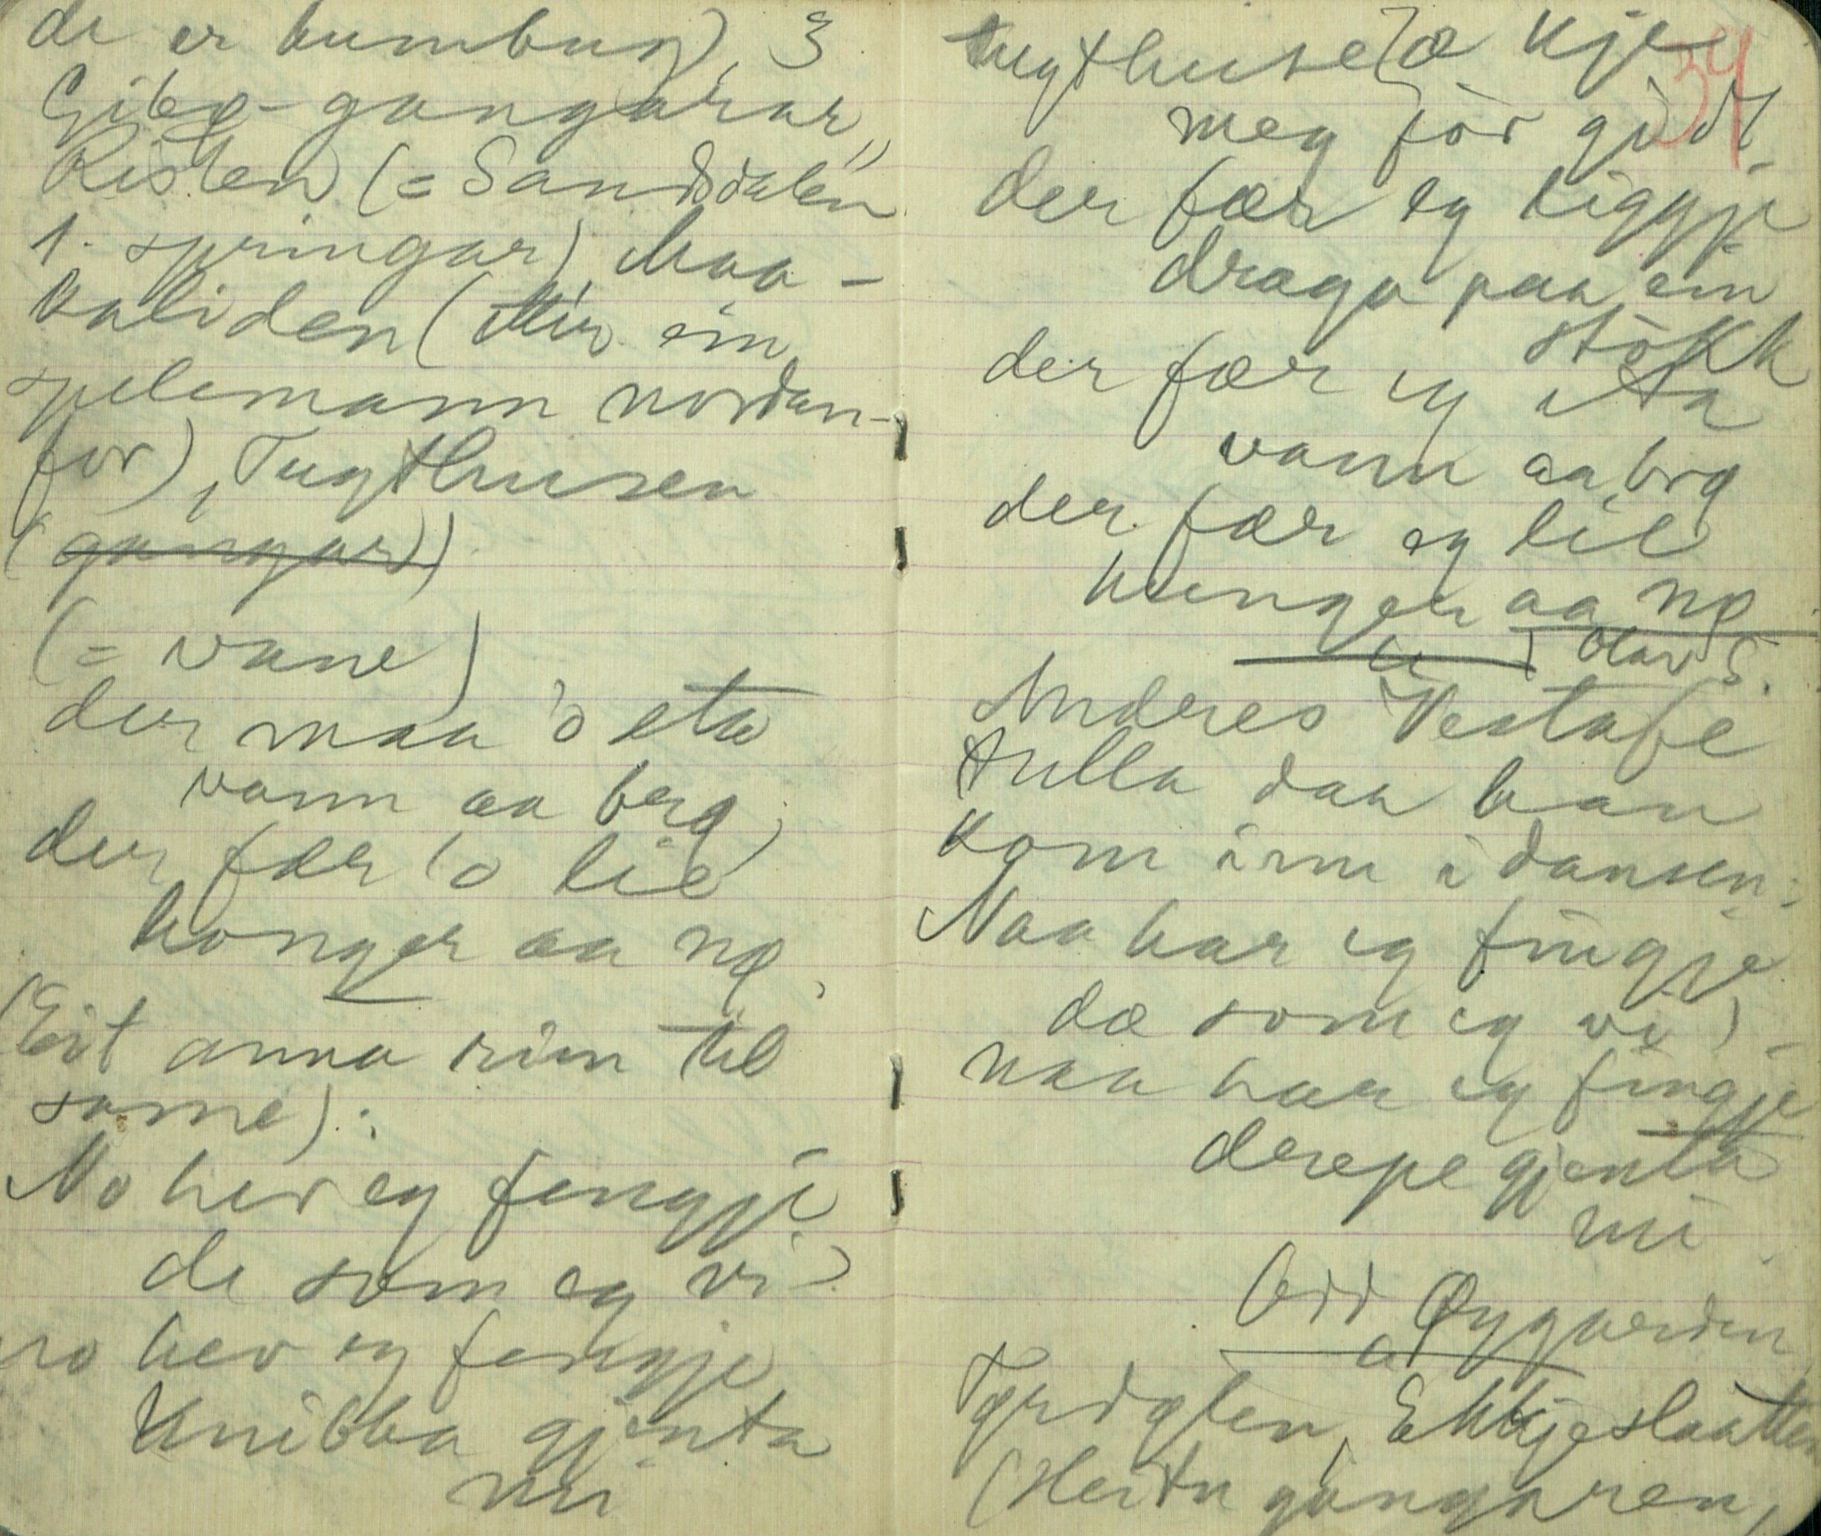 de er humbug), 3
Gibø-gangarar,
Risten (= Sandsdalen
1. springar), Maa-
kaliden (
spelemann nordan-
for), Tugthusen
(gangar)
(= vane)
der maa 'o eta
vann aa brø,
der fær 'o lie
honger aa nø,
(Eit anna rim til
same):
No hev eg fengje
de som eg vi?
no hev eg fengje
knibba gjenta
mi
tugthuse æ kje
meg før godt
34
der fær eg liggje
draga paa ein
stokk
der fær eg eta
vann aa brø
der fær eg lie
hunger aa nø
Olav S.
Andres Vestafe
tulla daa han
kom inn i dansen:
Naa har eg fingje
dæ som eg vi,
naa har eg fingje
drepe gjenta
mi.
Odd Øygarden
Igrigten, Ekkjeslaatten
(Heitn gangaren,